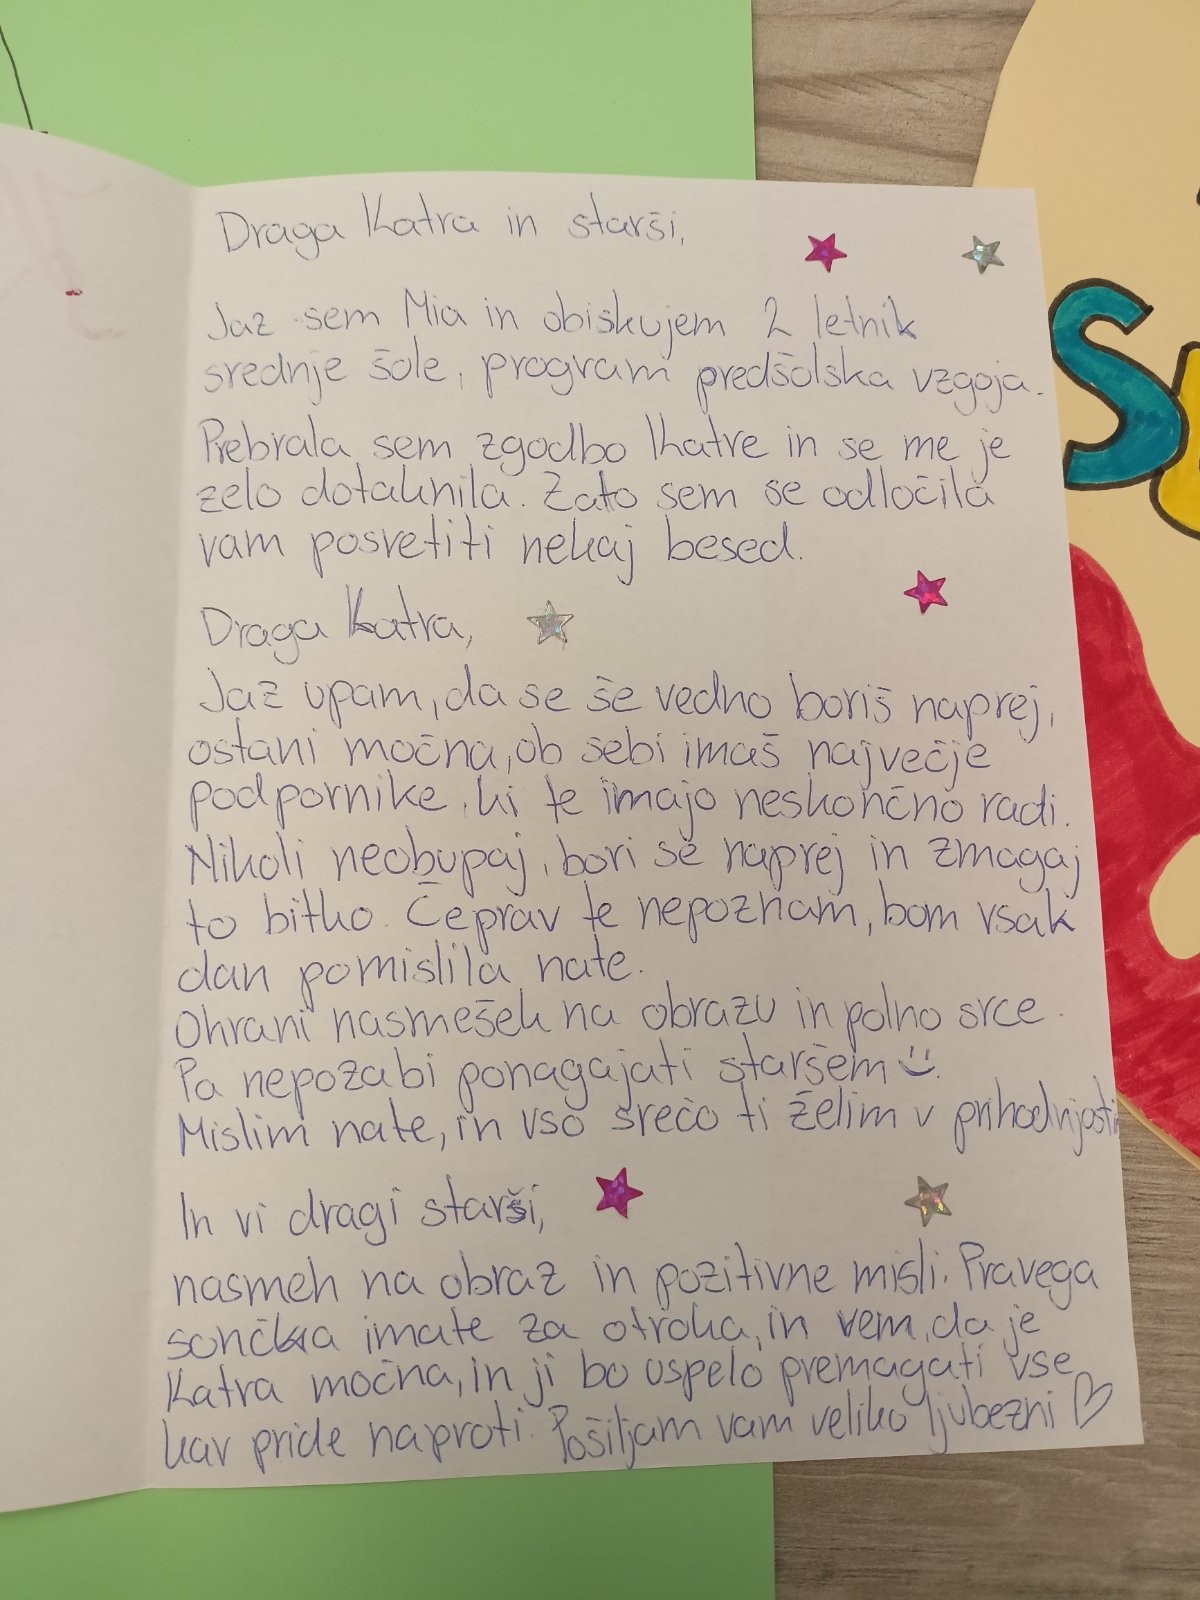 Draga Katra in starši,
Jaz sem Mia in obiskujem 2 letnik
srednje šole, program predšolska vzgoja.
Prebrala sem zgodbo Katre in se me je
zelo dotaknila. Zato sem se odločila
vam posvetiti nekaj besed.
Draga Katra,
Jaz upam, da se še vedno boriš naprej,
ostani močna, ob sebi imaš največje
podpornike, ki te imajo neskončno radi.
Nikoli neobupaj, bori se naprej in zmagaj
to bitko. Čeprav te nepoznam, bom vsak
dan pomislila nate.
Ohrani nasmešek na obrazu in polno srce.
Pa nepozabi ponagajati staršem
Mislim nate, in vso srečo ti želim v prihodnjosti
In vi dragi starši,
nasmeh na obraz in pozitivne misli. Pravega
sončka imate za otroka, in vem, da je
Katra močna, in ji bo uspelo premagati vse
kar pride naproti. Pošiljam vam veliko ljubezni
S